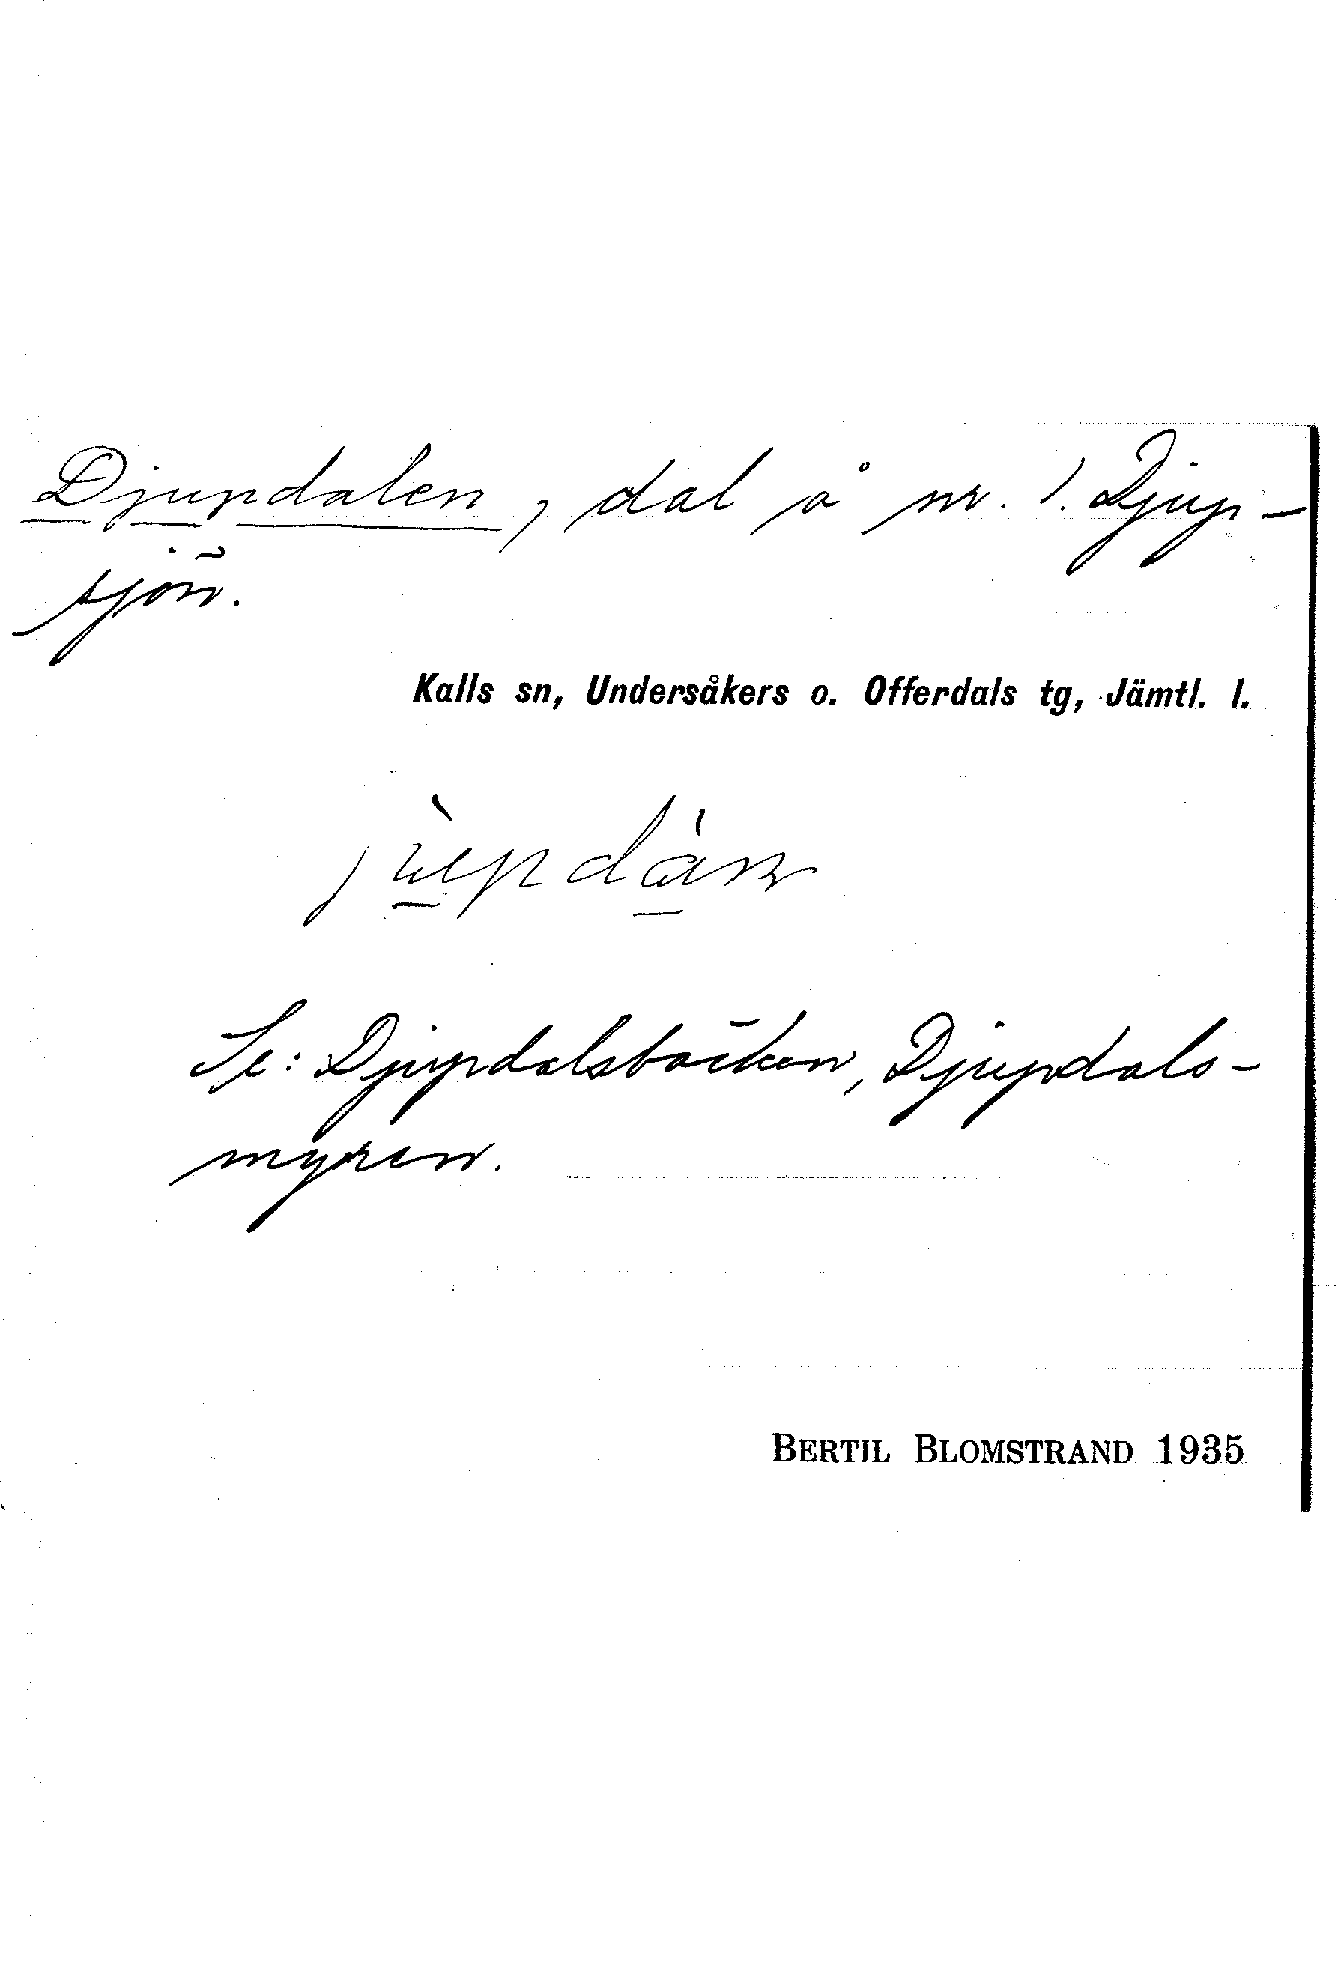 Djupdalen, dal å nr. 1. Djup-
sjön.
Kalls sn, Undersåkers o. Offerdals tg, Jämtl. l.
Se: Djupdalsbäcken, Djupdals-
myren.
BERTIL BLOMSTRAND 1935